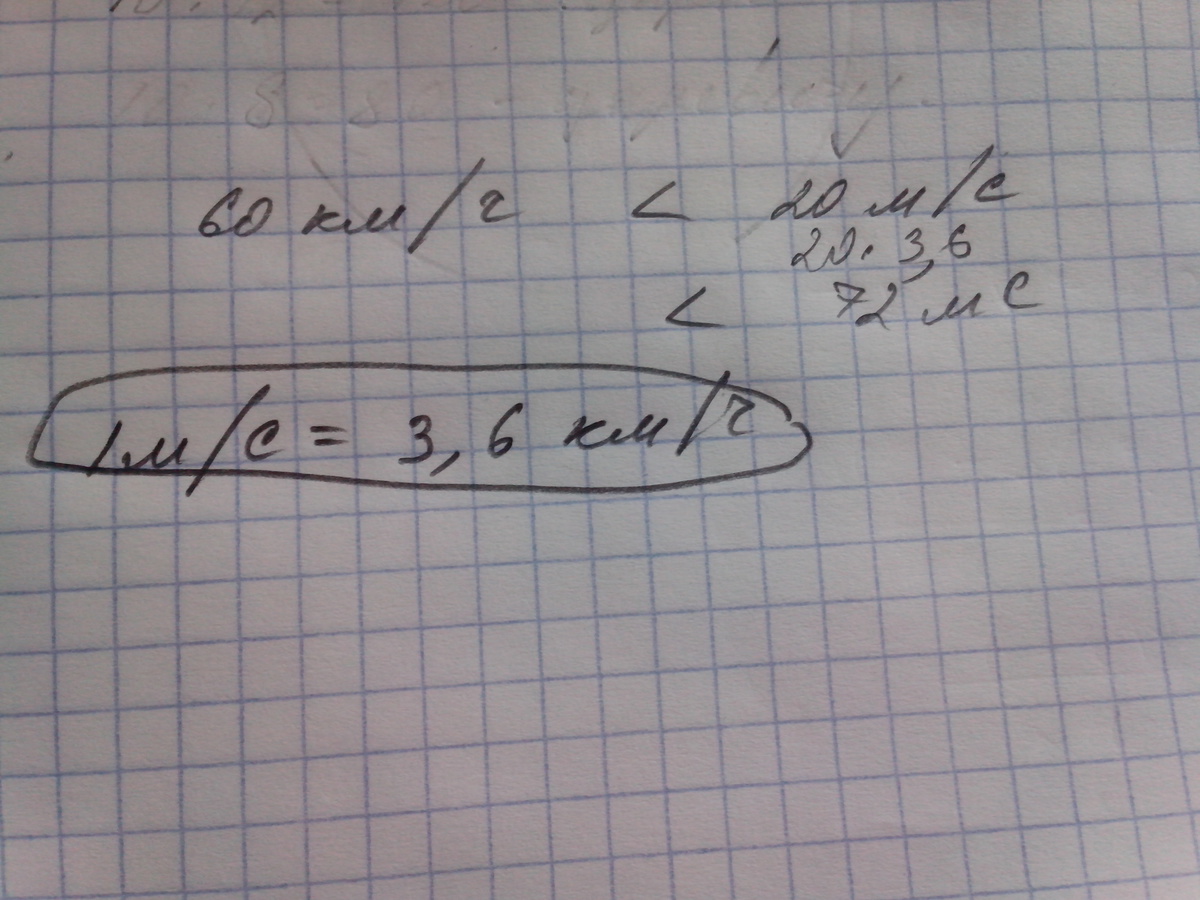 60 км/ч < 20 м/с
20 · 3,6
< 72 м с
1 м/с = 3,6 км/ч